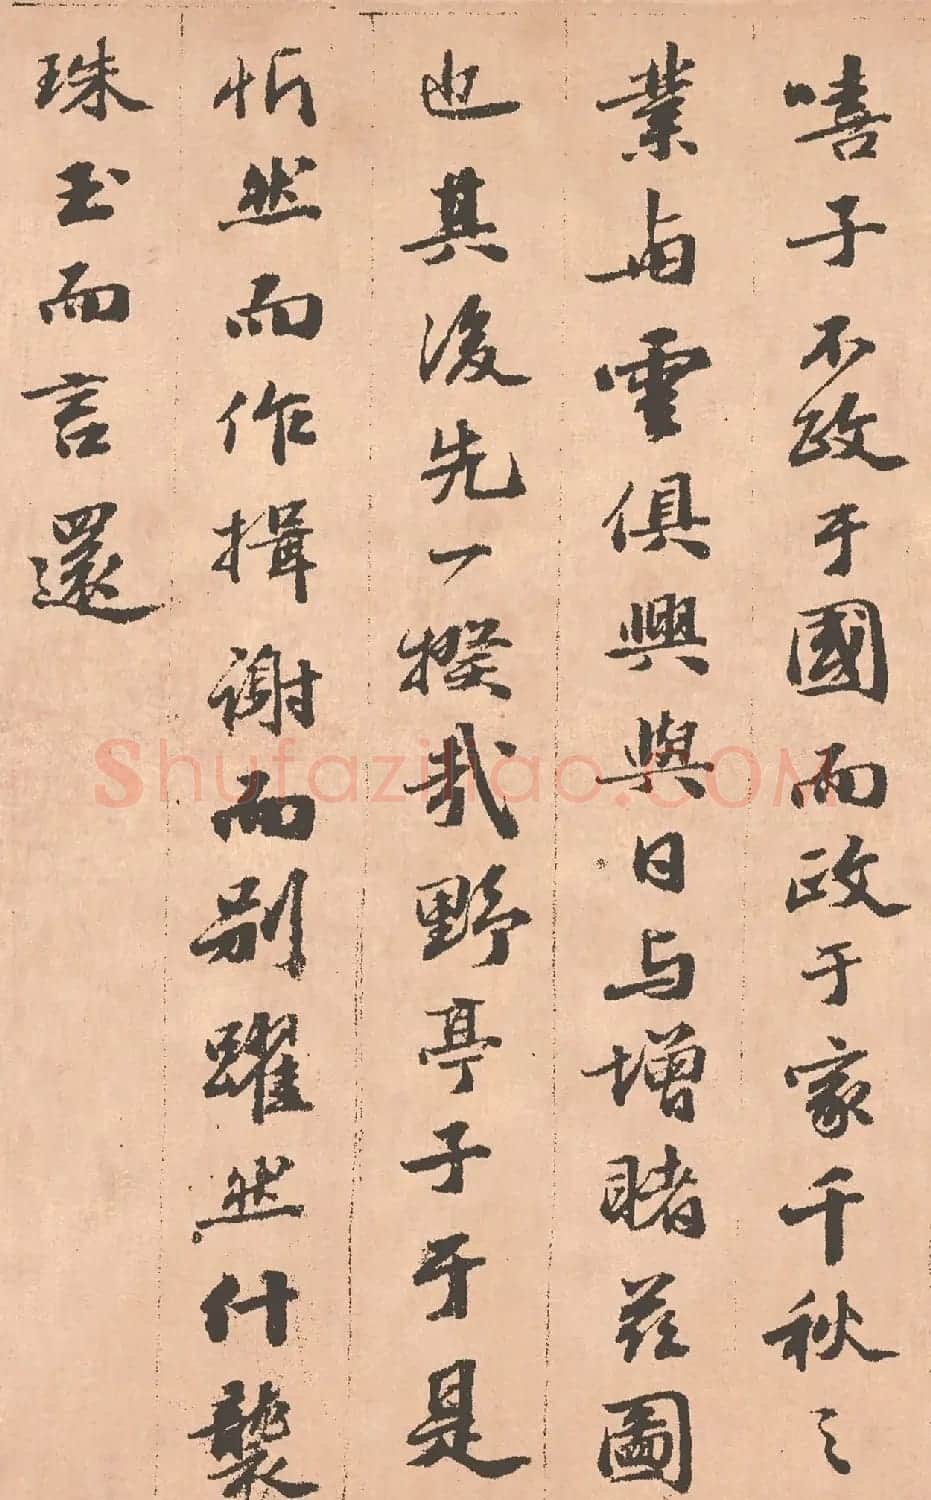 嘻子不政于國而政于家千秋之
業雲俱興與日与增睹茲圖
也其後先一揆哉野亭子于是
忻然而作揖謝而别躍然什襲
珠玉而言還
Shufaziliao.COM